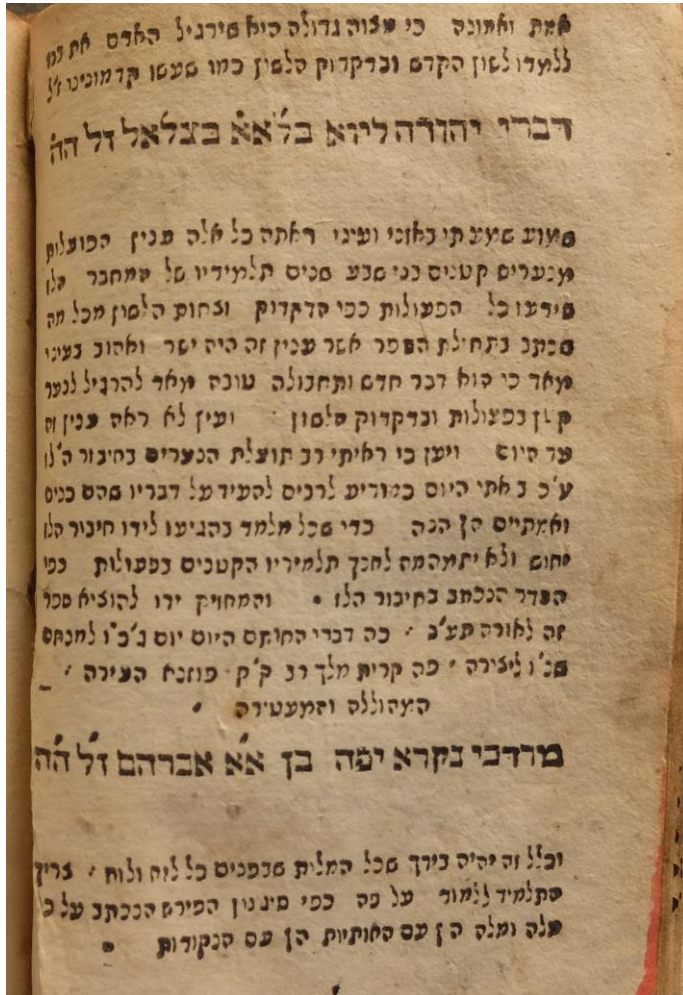 אמת ואמונה כי מצוה גדולה היא שירגיל האדם את בנו
ללמדו לשון הקדש ובדקדוק הלשון כמו שעשו קדמונינו ז״ל
דברי יהודה ליווא בלא״א בצלאל זל הה
שמוע שמעתי באזני ועיני ראתה כל אלה ענין הפועלות
מנערים קטנים בני שבע שנים תלמידיו של המחבר הלז
שידעו כל הפעולות כפי הדקדוק וצחות הלשון מכל מה
שכתב בתחילת הספר אשר ענין זה היה ישר ואהוב בעיני
מאד כי הוא דבר חדש ותחבולה טובה מאד להרגיל לנער
קטן בפעולות ובדקדוק הלשון ועין לא ראה ענין זה
עד היום ויען כי ראיתי רב תועלת הנערים בחיבור ה״לז
ע״כ באתי היום כמודיע לרבים להעיד על דבריו שהם כנים
ואמתיים הן הנה כדי שכל מלמד בהגיעו לידו חיבור הלז
יחוש ולא יתמהמה לחנך תלמידיו הקטנים בפעולות כפי
הסדר הנכתב בחיבור הלז • והמחזיק ידו להוציא ספר
זה לאורה תע״ב · כה דברי החותם היום יום ג׳ כ״ו למנחם
שנ״ו ליצירה · פה קרית מלך רב ק״ק פוזנא העירה ·
המהוללה והמעטירה •
מרדכי נקרא יפה בן א״א אברהם ז״ל ה״ה
וכלל זה יהיה בידך שכל המלות שבפנים כל לוח ולוח · צריך
התלמיד ללמוד על פה כפי סיגנון הפירש הנכתב על כ
מלה ומלה הן עם האותיות הן עם הנקודות •